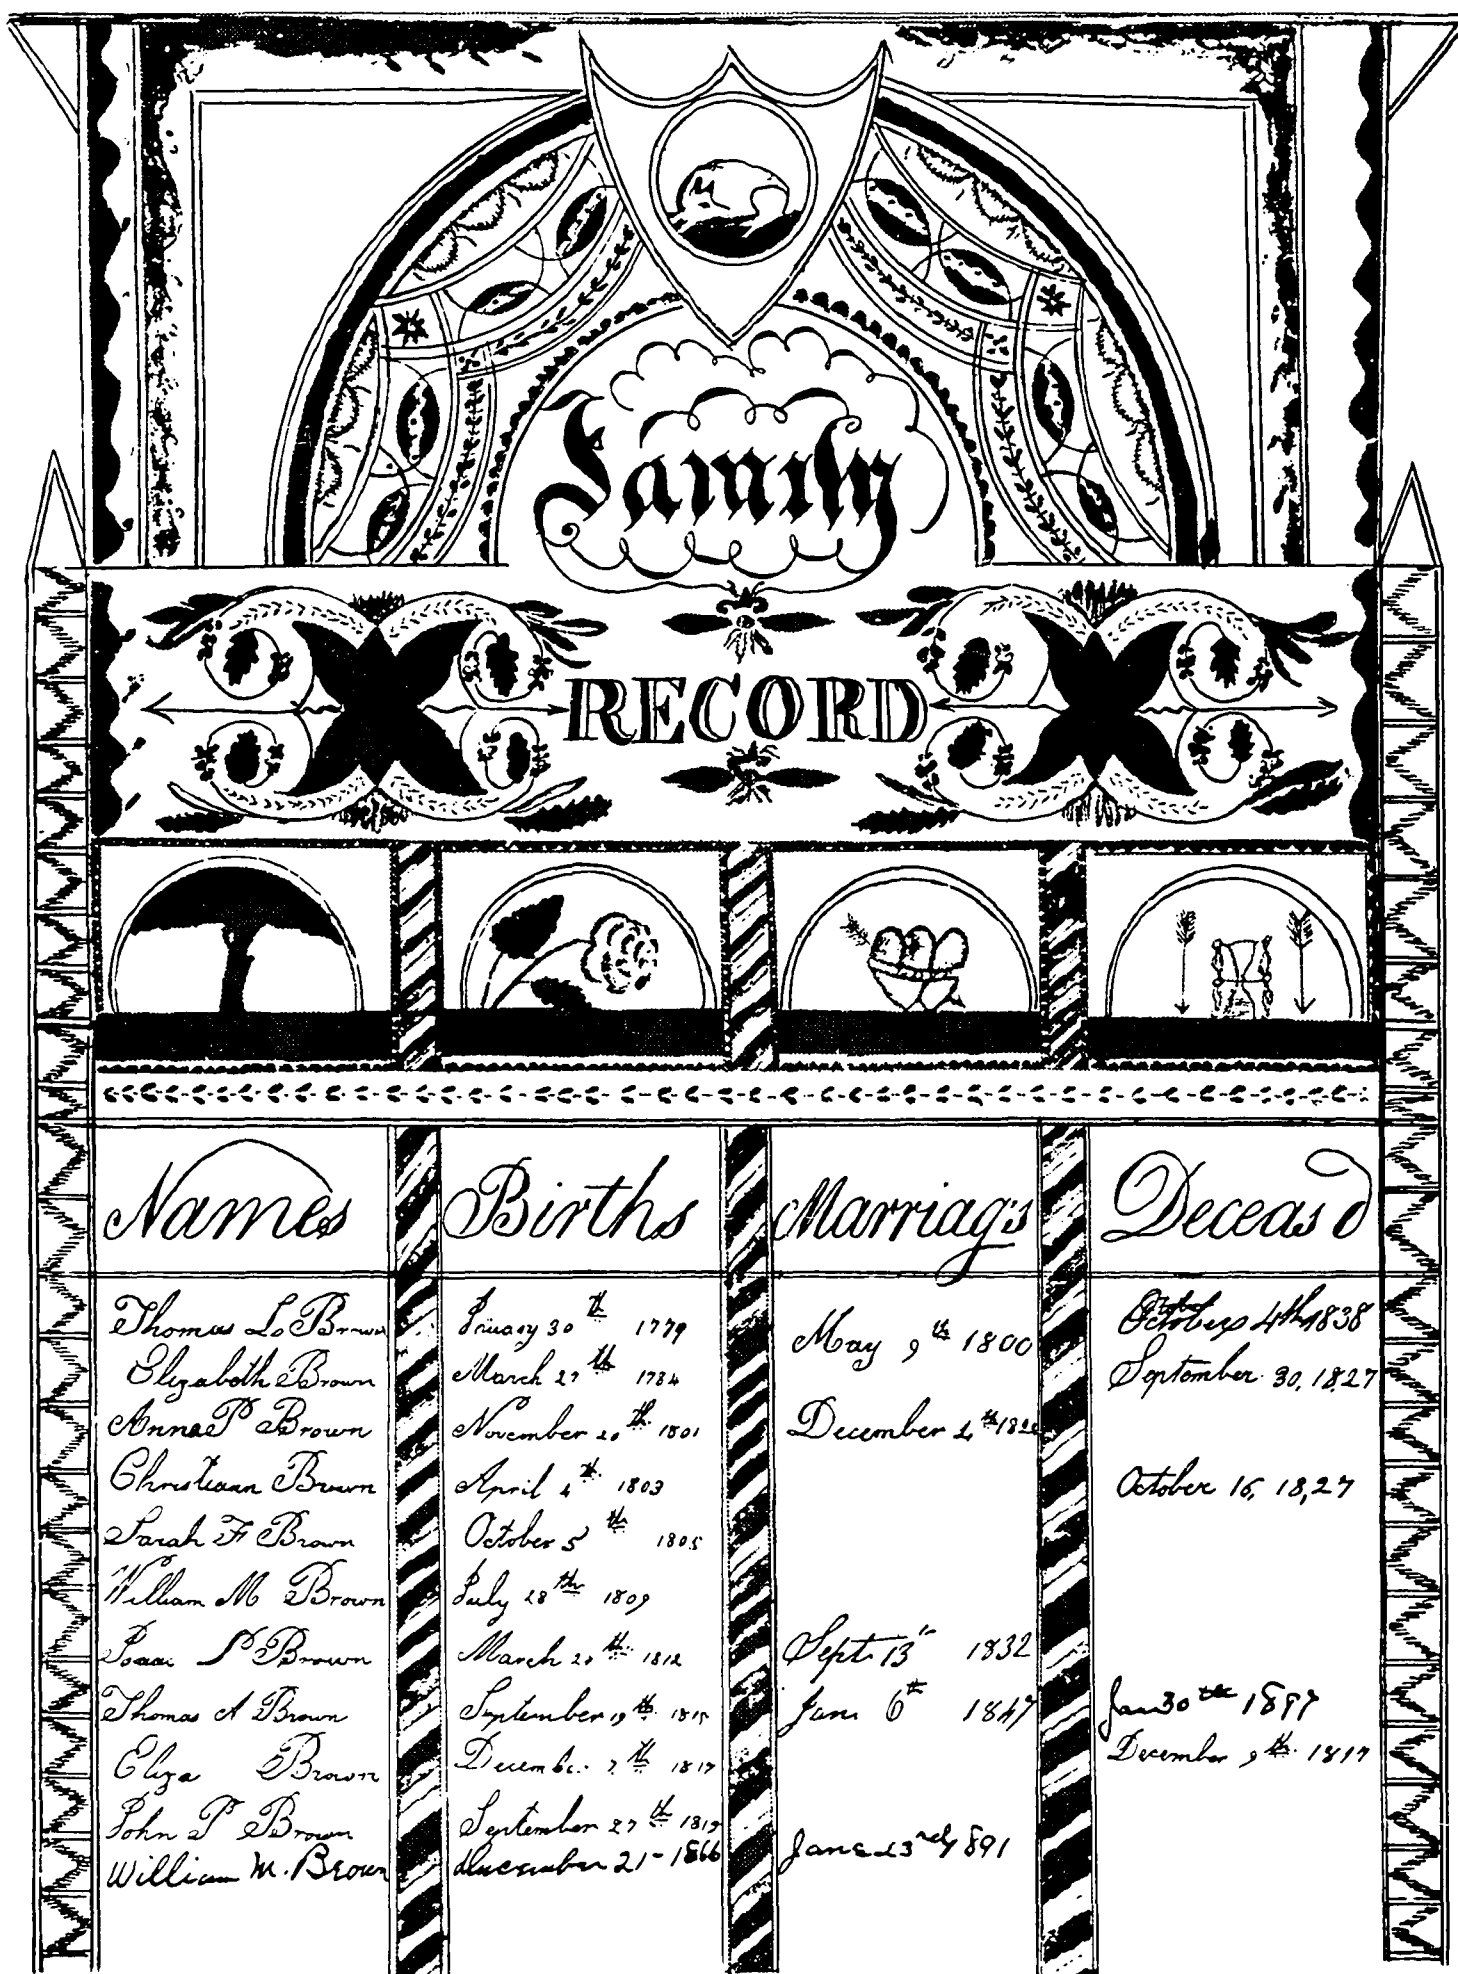 Family
RECORD
Names Births Marriag's Deceasd
Thomas L. Brown January 30th 1779 May 9th 1800 October 4th 1838
Elizabeth Brown March 27th 1784 September 30, 1827
Anna P Brown November 20th 1801 December 4th
Christiann Brown April 4th 1803 October 16, 18,27
Sarah F Brown October 5th 1805
William M Brown July 28th 1809
Isaac P Brown March 20th 1812 Sept. 13th 1832
Thomas A Brown September 19th 1815 Jan. 6th 1847 Jan 30th 1897
Eliza Brown December 7th 1817 December 9th 1817
John P Brown September 27th 1819
William M. Brown December 21- 1866 June 23rd 1891